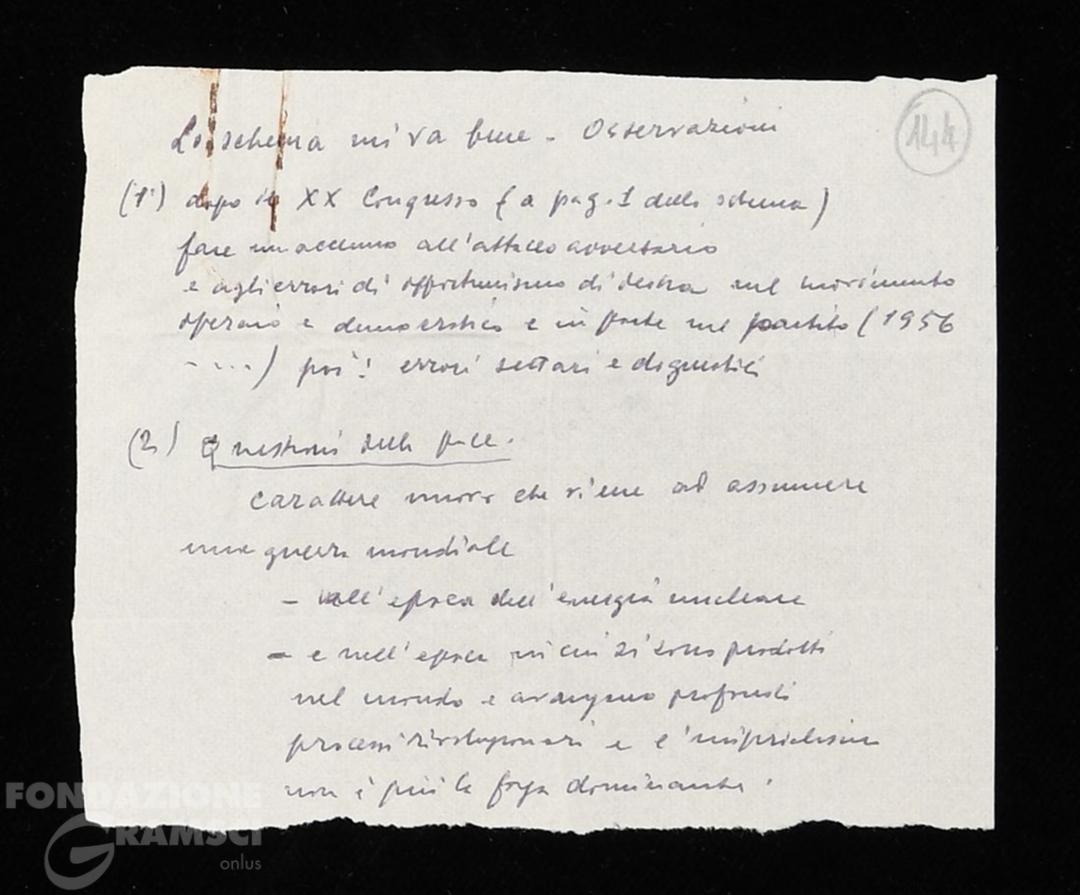 144
Lo schema mi va bene - Osservazioni
(1°) dopo il XX Congresso (a pag. 1 dello schema)
fare un accenno all'attacco avversario
e agli errori di opportunismo di destra nel movimento
operaio e democratico e in parte nel partito (1956
- ...) poi: errori settari e dogmatici
(2) Questioni della pace.
carattere nuovo che viene ad assumere
una guerra mondiale
- nell'epoca dell'energia nucleare
- e nell'epoca in cui si sono prodotti
nel mondo e avanzano profondi
processi rivoluzionari e l'imperialismo
non è più la forza dominante.
FONDAZIONE
GRAMSCI
onlus